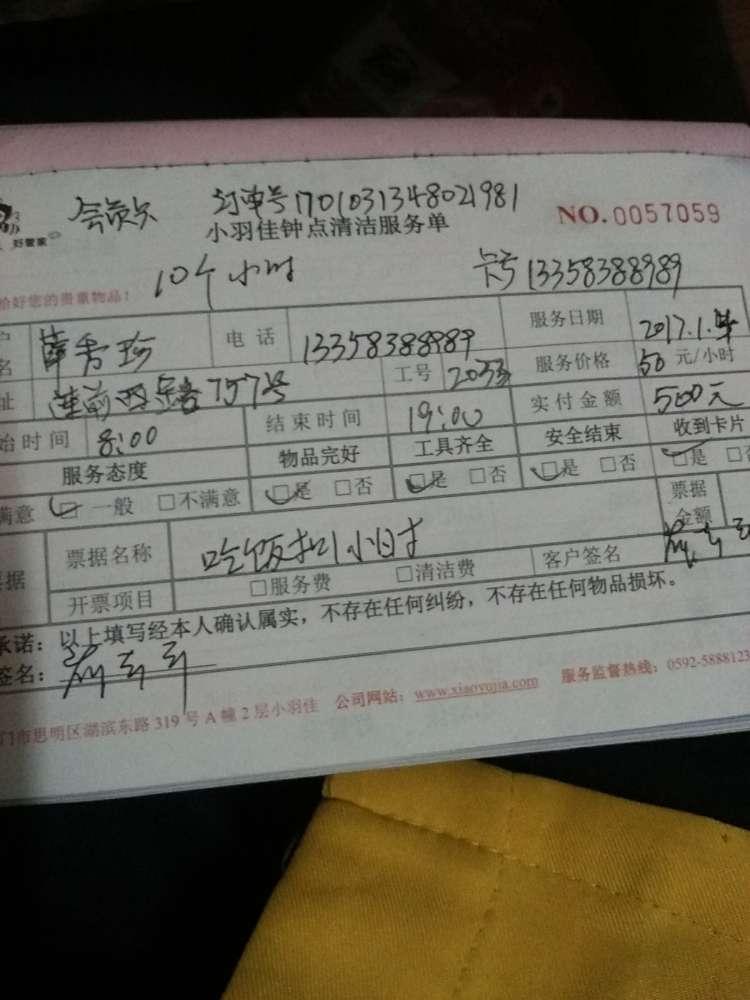 订单号1701031348021981
NO.0057059
好管家
小羽佳钟点清洁服务单
10个小时
卡号13358388989
给好您的贵重物品!
名 薛秀珍 电话 13358388989 服务日期 2017.1.
址 莲前西路757号 工号 2033 服务价格 50元/小时
始时间 8:00 结束时间 19:00 实付金额 500元
服务态度 物品完好 工具齐全 安全结束 收到卡片
满意 一般 不满意 是 否 是 否 是 否 是
票据名称 吃饭扣1小时 客户签名 票据金额
开票项目 服务费 清洁费
承诺:以上填写经本人确认属实,不存在任何纠纷,不存在任何物品损坏。
签名:
门市思明区湖滨东路319号A幢2层小羽佳 公司网站:www.xiaoyujia.com 服务监督热线:0592-5888123